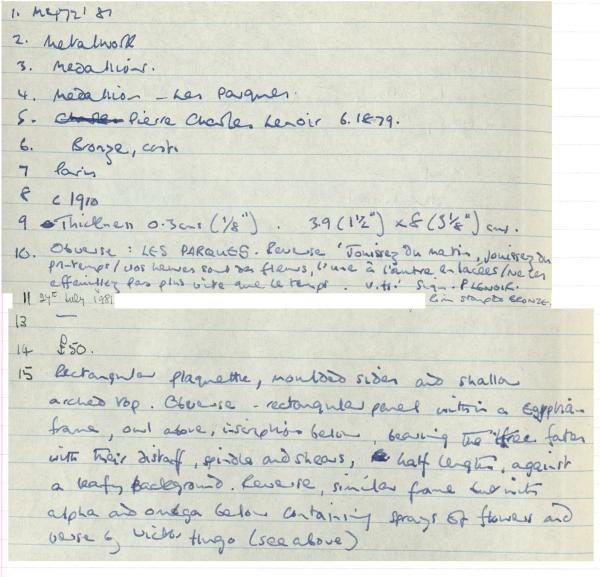 1. '81
2. Metalwork
3. Medallions.
4. Medallion – Les Parques.
5. Pierre Charles Lenoir b.1879.
6. Bronze, cast
7 Paris
8 c 1910
9 Thickness 0.3cms (1/8") . 3.9 (1½") x 8 (3⅛") cms.
10. Obverse : LES PARQUES. Reverse 'Jouissez du matin, jouissez du
printemps / vos heures sont des fleurs, l'une à l'autre enlacées / ne les
effeuillez pas plus vite que le temps. V.H.' Sign. P LENOIR.
Rim stamped BRONZE.
11 24th July 1981
13 —
14 £50.
15 Rectangular plaquette, moulded sides and shallow
arched top. Obverse – rectangular panel within a Egyptian
frame, owl above, inscription below, bearing the three fates
with their distaff, spindle and shears, half lengths, against
a leafy background. Reverse, similar frame but with
alpha and omega below containing sprays of flowers and
verse by Victor Hugo (see above)